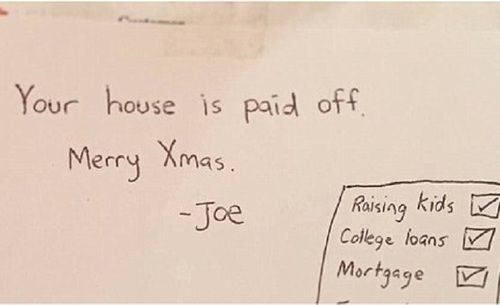 Your house is paid off.
Merry Xmas.
-Joe
Raising kids
College loans
Mortgage